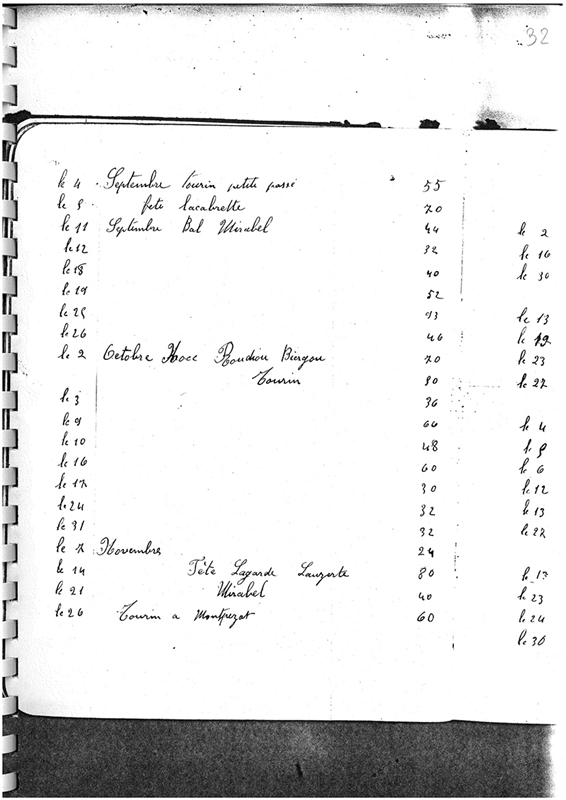 32
le 4 Septembre tourin petite passé 55
le 5 fete lacabrette 70
le 11 Septembre Bal Mirabel 44
le 12 32
le 18 40
le 19 52
le 25 93
le 26 46
le 2 Octobre Nocc Roudiou 70
Tourin 80
le 3 36
le 9 66
le 10 48
le 16 60
le 17 30
le 24 32
le 31 32
le 7 Novembre 24
le 14 Tête Lagarde Lauzerte 80
le 21 Mirabel 40
le 26 Tourin a Montpezat 60
le 2
le 16
le 30
le 13
le 19
le 23
le 27
le 4
le 5
le 6
le 12
le 13
le 27
le 17
le 23
le 24
le 30